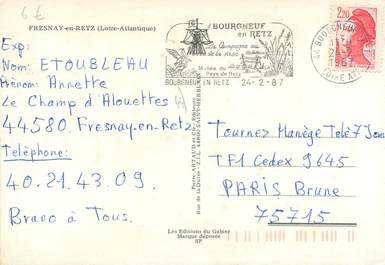 6 €
FRESNAY-en-RETZ (Loire-Atlantique)
Exp:
Nom: ETOUBLEAU
Prénom: Annette
Le Champ d'Alouettes
44580. Fresnay-en-Retz
Telèphone:
40.21.43.09.
Bravo à Tous.
BOURGNEUF
en RETZ
la Campagne au
bord de la mer
Musée du
Pays de Retz
BOURGNEUF EN RETZ 24-2-87
44 BOURGNEUF
LOIRE ATL
2,20
Tournez Manège Telè 7 Jours
TF1 Cedex 9645
PARIS Brune
75715
Les Editions du Gabier
Marque déposée
SP